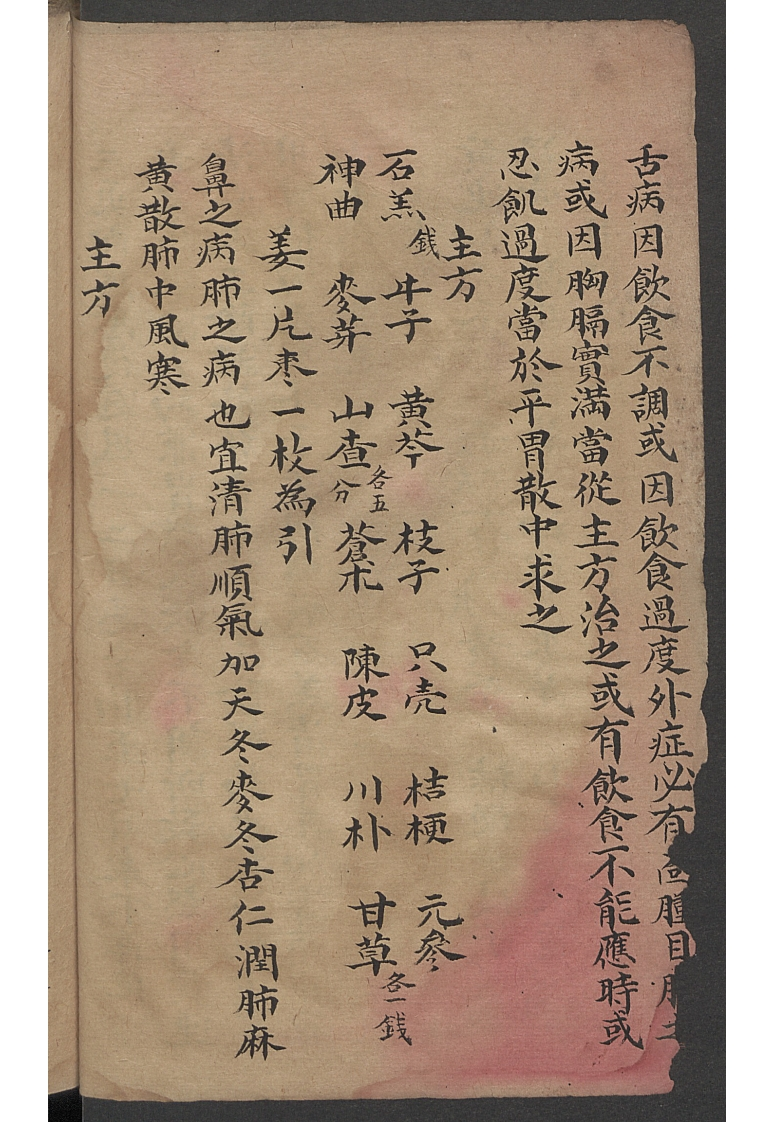 舌病因飲食不調或因飲食過度外症必有 臃目
病或因胸膈實滿當從主方治之或有飲食不能應時或
忍飢過度當於平胃散中求之
主方
石羔錢 牛子 黄芩 枝子 只壳 桔梗 元參
神曲 麥芽 山查各五分 蒼朮 陳皮 川朴 甘草各一錢
姜一片枣一枚為引
鼻之病肺之病也宜清肺順氣加天冬麥冬杏仁潤肺麻
黄散肺中風寒
主方